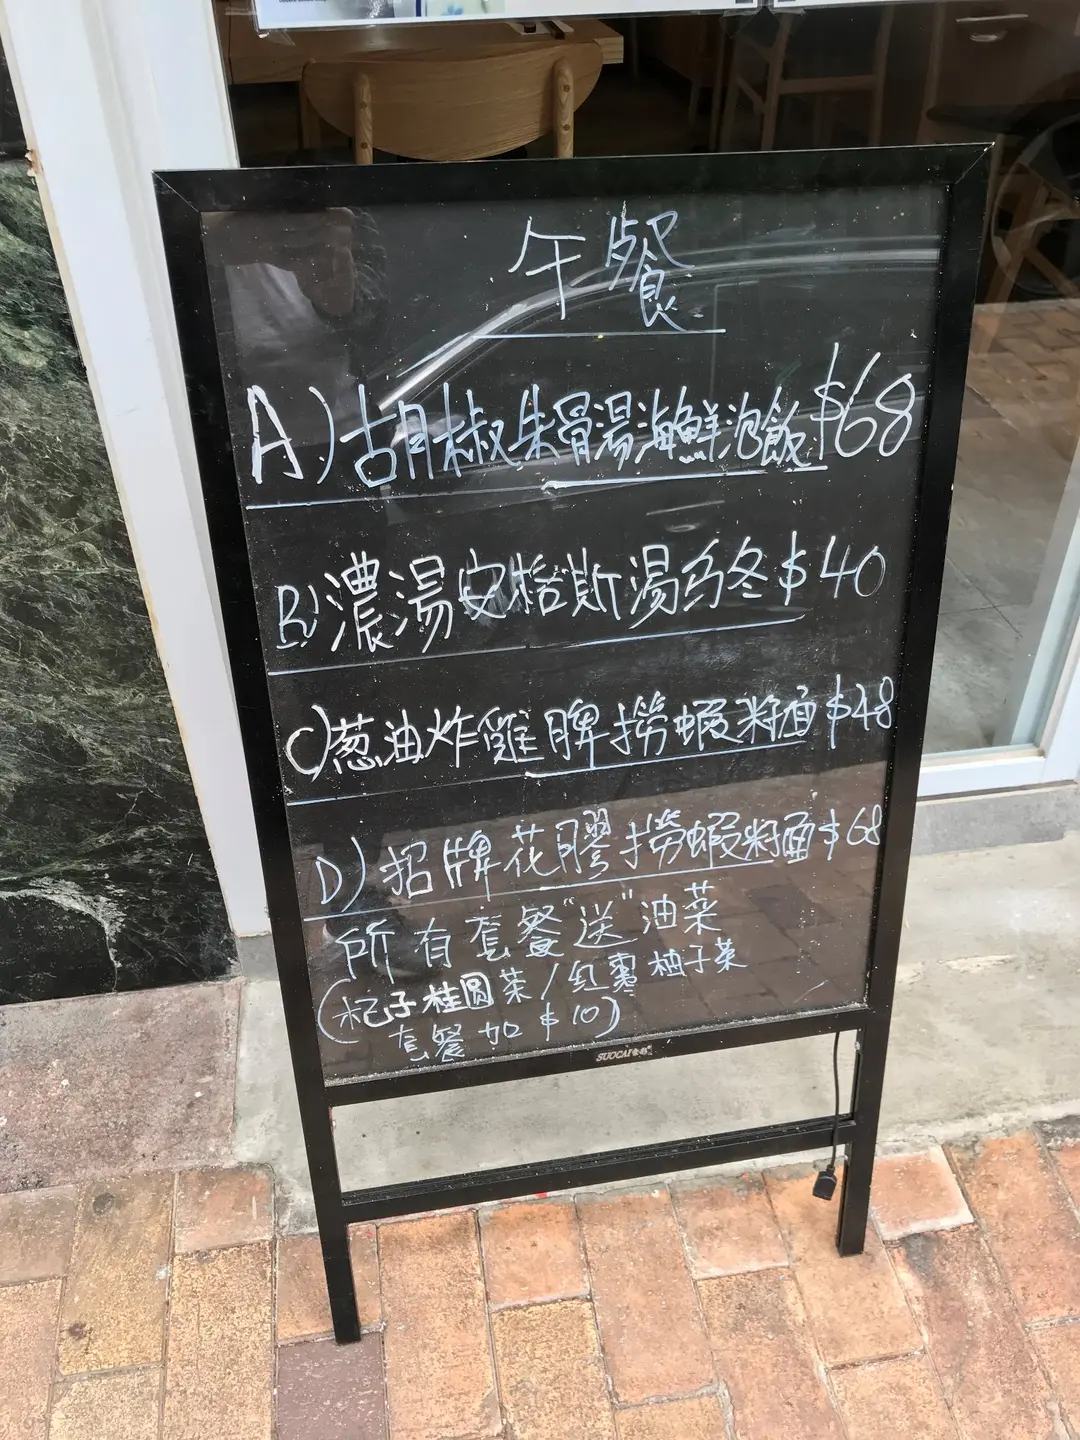 午餐
A) 胡椒朱骨湯海鮮泡飯 $68
B) 濃湯安格斯湯乌冬 $40
C) 葱油炸雞髀撈蝦籽面 $48
D) 招牌花膠撈蝦籽面 $68
所有套餐"送"油菜
(杞子桂圓茶/红棗柚子茶
套餐加 $10)
SUOCAI